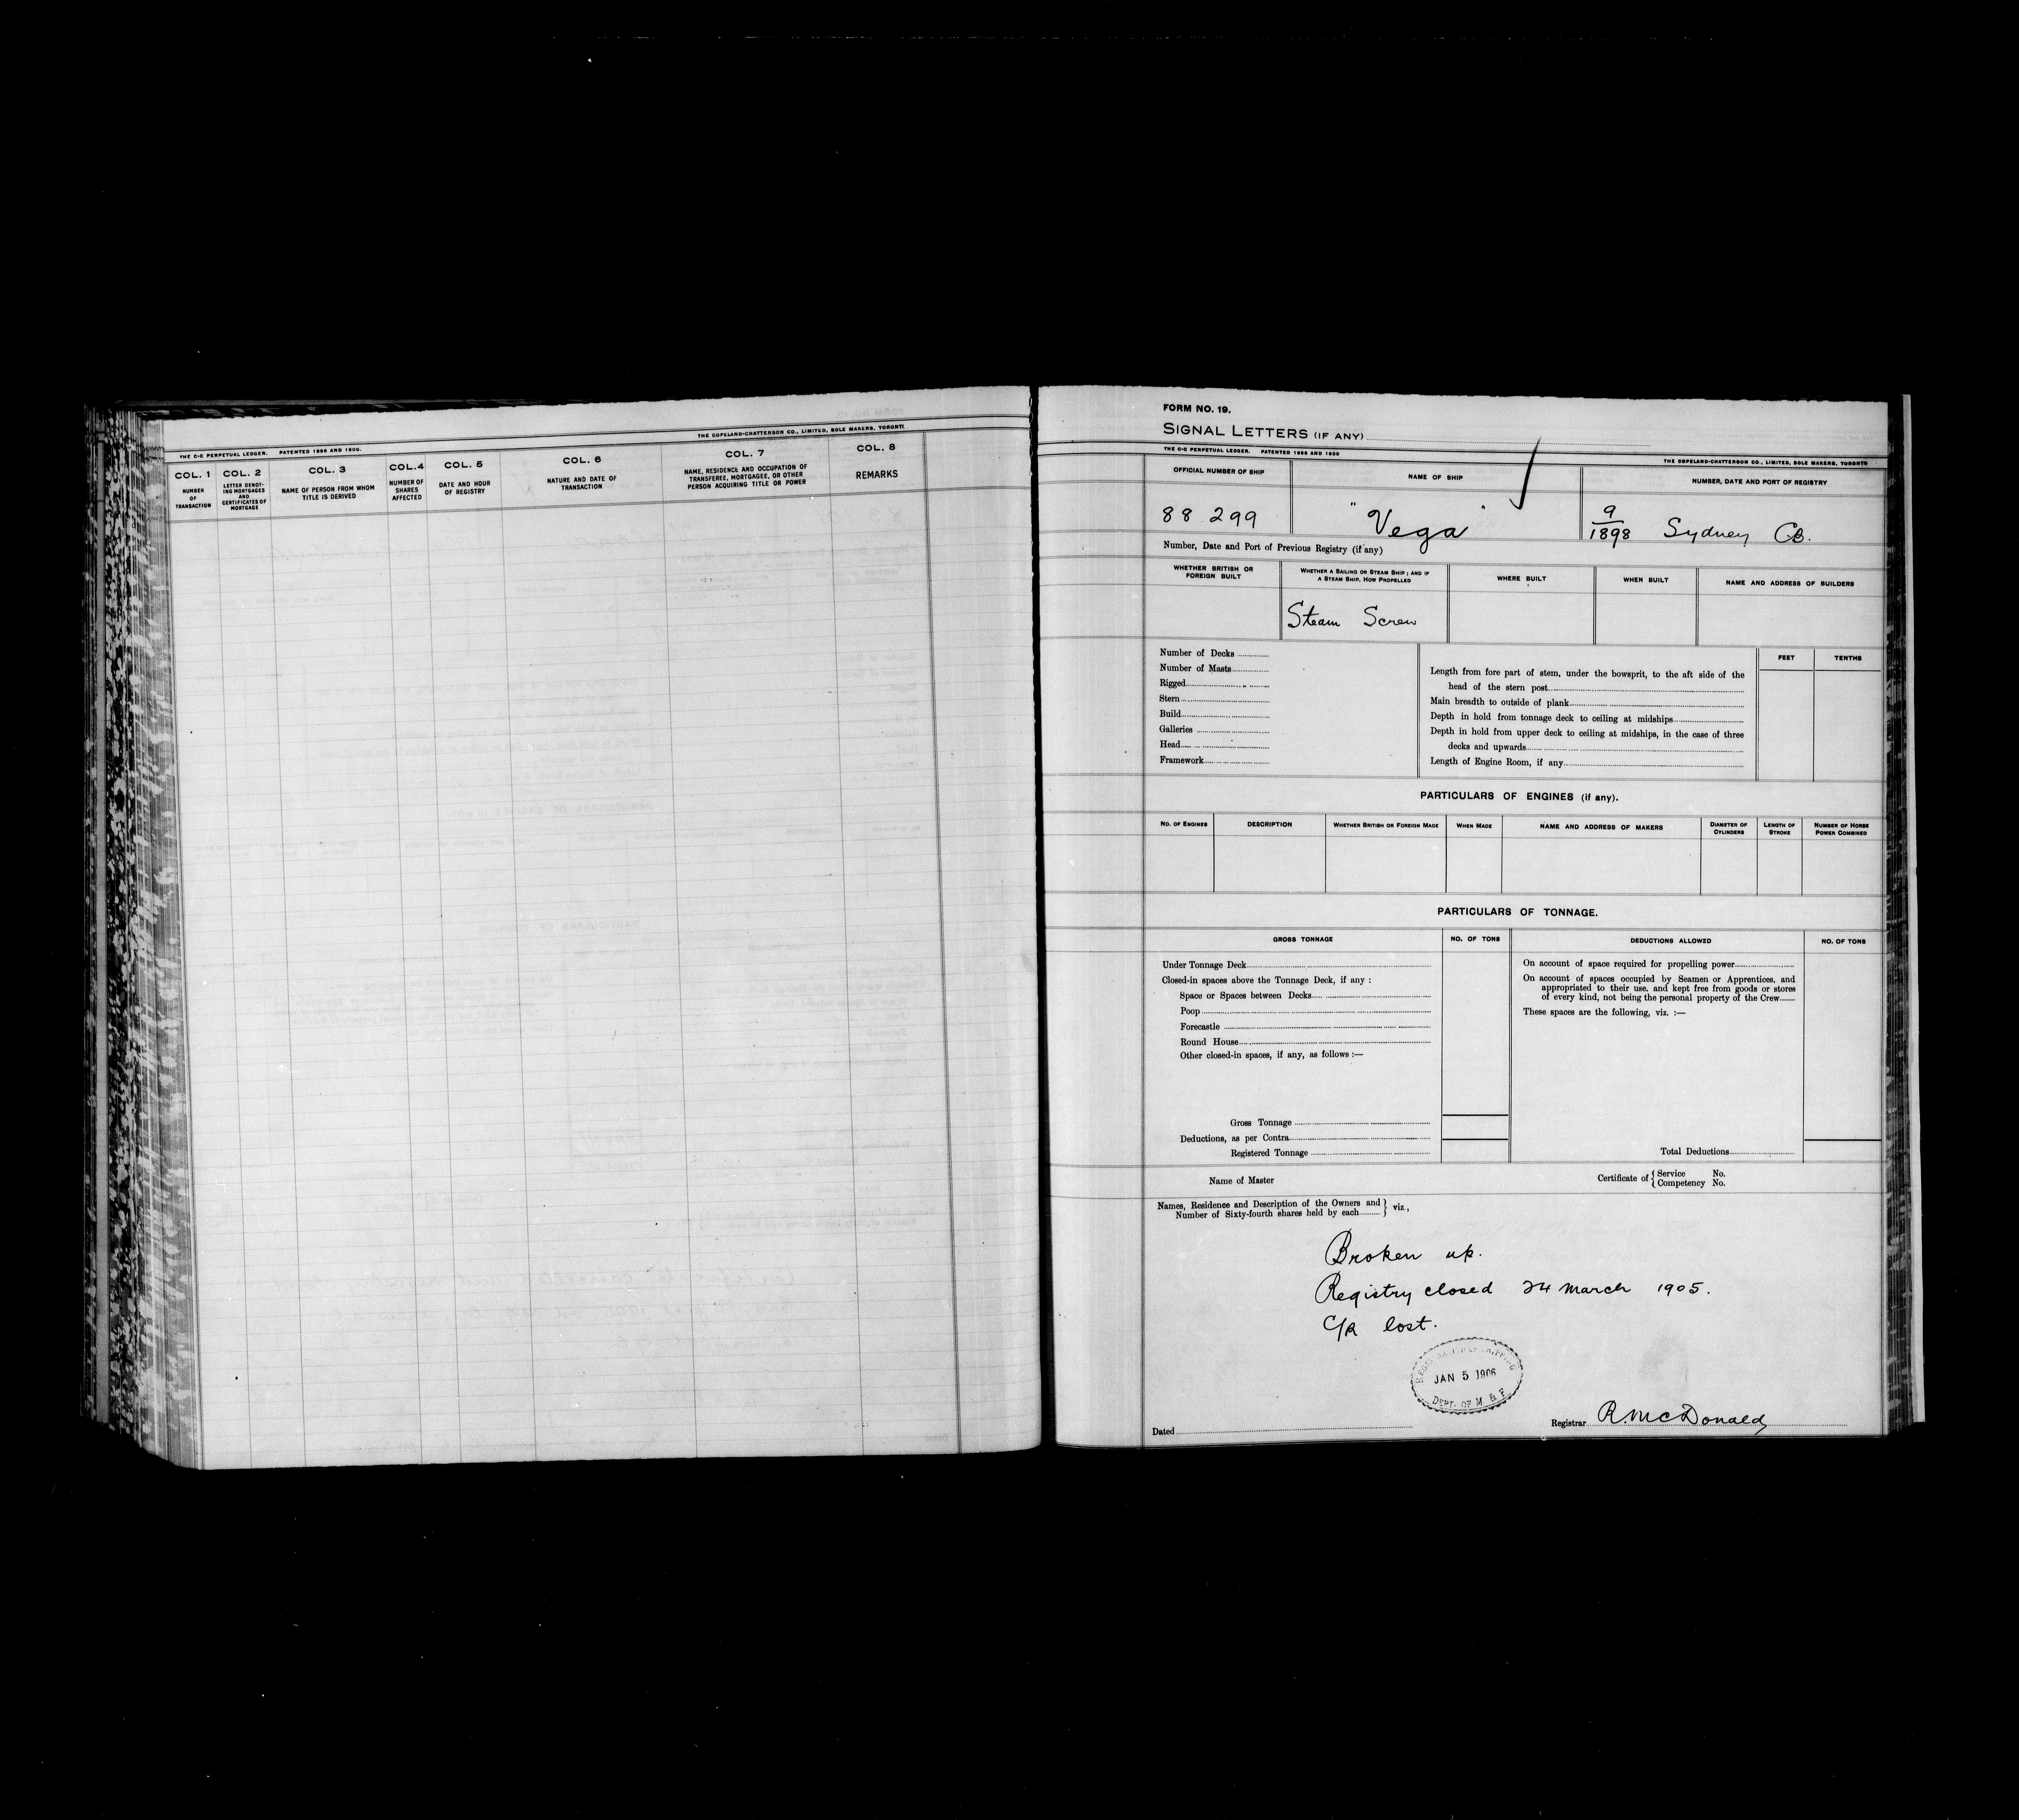 THE C-C PERPETUAL LEDGER. PATENTED 1898 AND 1900.
THE COPELAND-CHATTERSON CO., LIMITED, SOLE MAKERS, TORONTO
COL. 1
NUMBER
OF
TRANSACTION
COL. 2
LETTER DENOT-
ING MORTGAGES
AND
CERTIFICATES OF
MORTGAGE
COL. 3
NAME OF PERSON FROM WHOM
TITLE IS DERIVED
COL. 4
NUMBER OF
SHARES
AFFECTED
COL. 5
DATE AND HOUR
OF REGISTRY
COL. 6
NATURE AND DATE OF
TRANSACTION
COL. 7
NAME, RESIDENCE AND OCCUPATION OF
TRANSFEREE, MORTGAGEE, OR OTHER
PERSON ACQUIRING TITLE OR POWER
COL. 8
REMARKS
FORM NO. 19.
SIGNAL LETTERS (IF ANY)
THE C-C PERPETUAL LEDGER. PATENTED 1898 AND 1900
THE COPELAND-CHATTERSON CO., LIMITED, SOLE MAKERS, TORONTO
OFFICIAL NUMBER OF SHIP
88 299
NAME OF SHIP
"Vega"
NUMBER, DATE AND PORT OF REGISTRY
9/1898 Sydney CB.
Number, Date and Port of Previous Registry (if any)
WHETHER BRITISH OR
FOREIGN BUILT
WHETHER A SAILING OR STEAM SHIP; AND IF
A STEAM SHIP, HOW PROPELLED
Steam Screw
WHERE BUILT
WHEN BUILT
NAME AND ADDRESS OF BUILDERS
Number of Decks
Number of Masts
Rigged
Stern
Build
Galleries
Head
Framework
FEET
TENTHS
Length from fore part of stem, under the bowsprit, to the aft side of the
head of the stern post
Main breadth to outside of plank
Depth in hold from tonnage deck to ceiling at midships
Depth in hold from upper deck to ceiling at midships, in the case of three
decks and upwards
Length of Engine Room, if any
PARTICULARS OF ENGINES (if any).
NO. OF ENGINES
DESCRIPTION
WHETHER BRITISH OR FOREIGN MADE
WHEN MADE
NAME AND ADDRESS OF MAKERS
DIAMETER OF
CYLINDERS
LENGTH OF
STROKE
NUMBER OF HORSE
POWER COMBINED
PARTICULARS OF TONNAGE.
GROSS TONNAGE
NO. OF TONS
DEDUCTIONS ALLOWED
NO. OF TONS
Under Tonnage Deck
Closed-in spaces above the Tonnage Deck, if any :
Space or Spaces between Decks
Poop
Forecastle
Round House
Other closed-in spaces, if any, as follows :—
Gross Tonnage
Deductions, as per Contra
Registered Tonnage
On account of space required for propelling power
On account of spaces occupied by Seamen or Apprentices, and
appropriated to their use, and kept free from goods or stores
of every kind, not being the personal property of the Crew
These spaces are the following, viz. :—
Total Deductions
Name of Master
Certificate of { Service No.
{ Competency No.
Names, Residence and Description of the Owners and } viz.,
Number of Sixty-fourth shares held by each
Broken up.
Registry closed 24 March 1905.
C/R lost.
JAN 5 1906
DEPT. OF M & F
Dated
Registrar R. McDonald